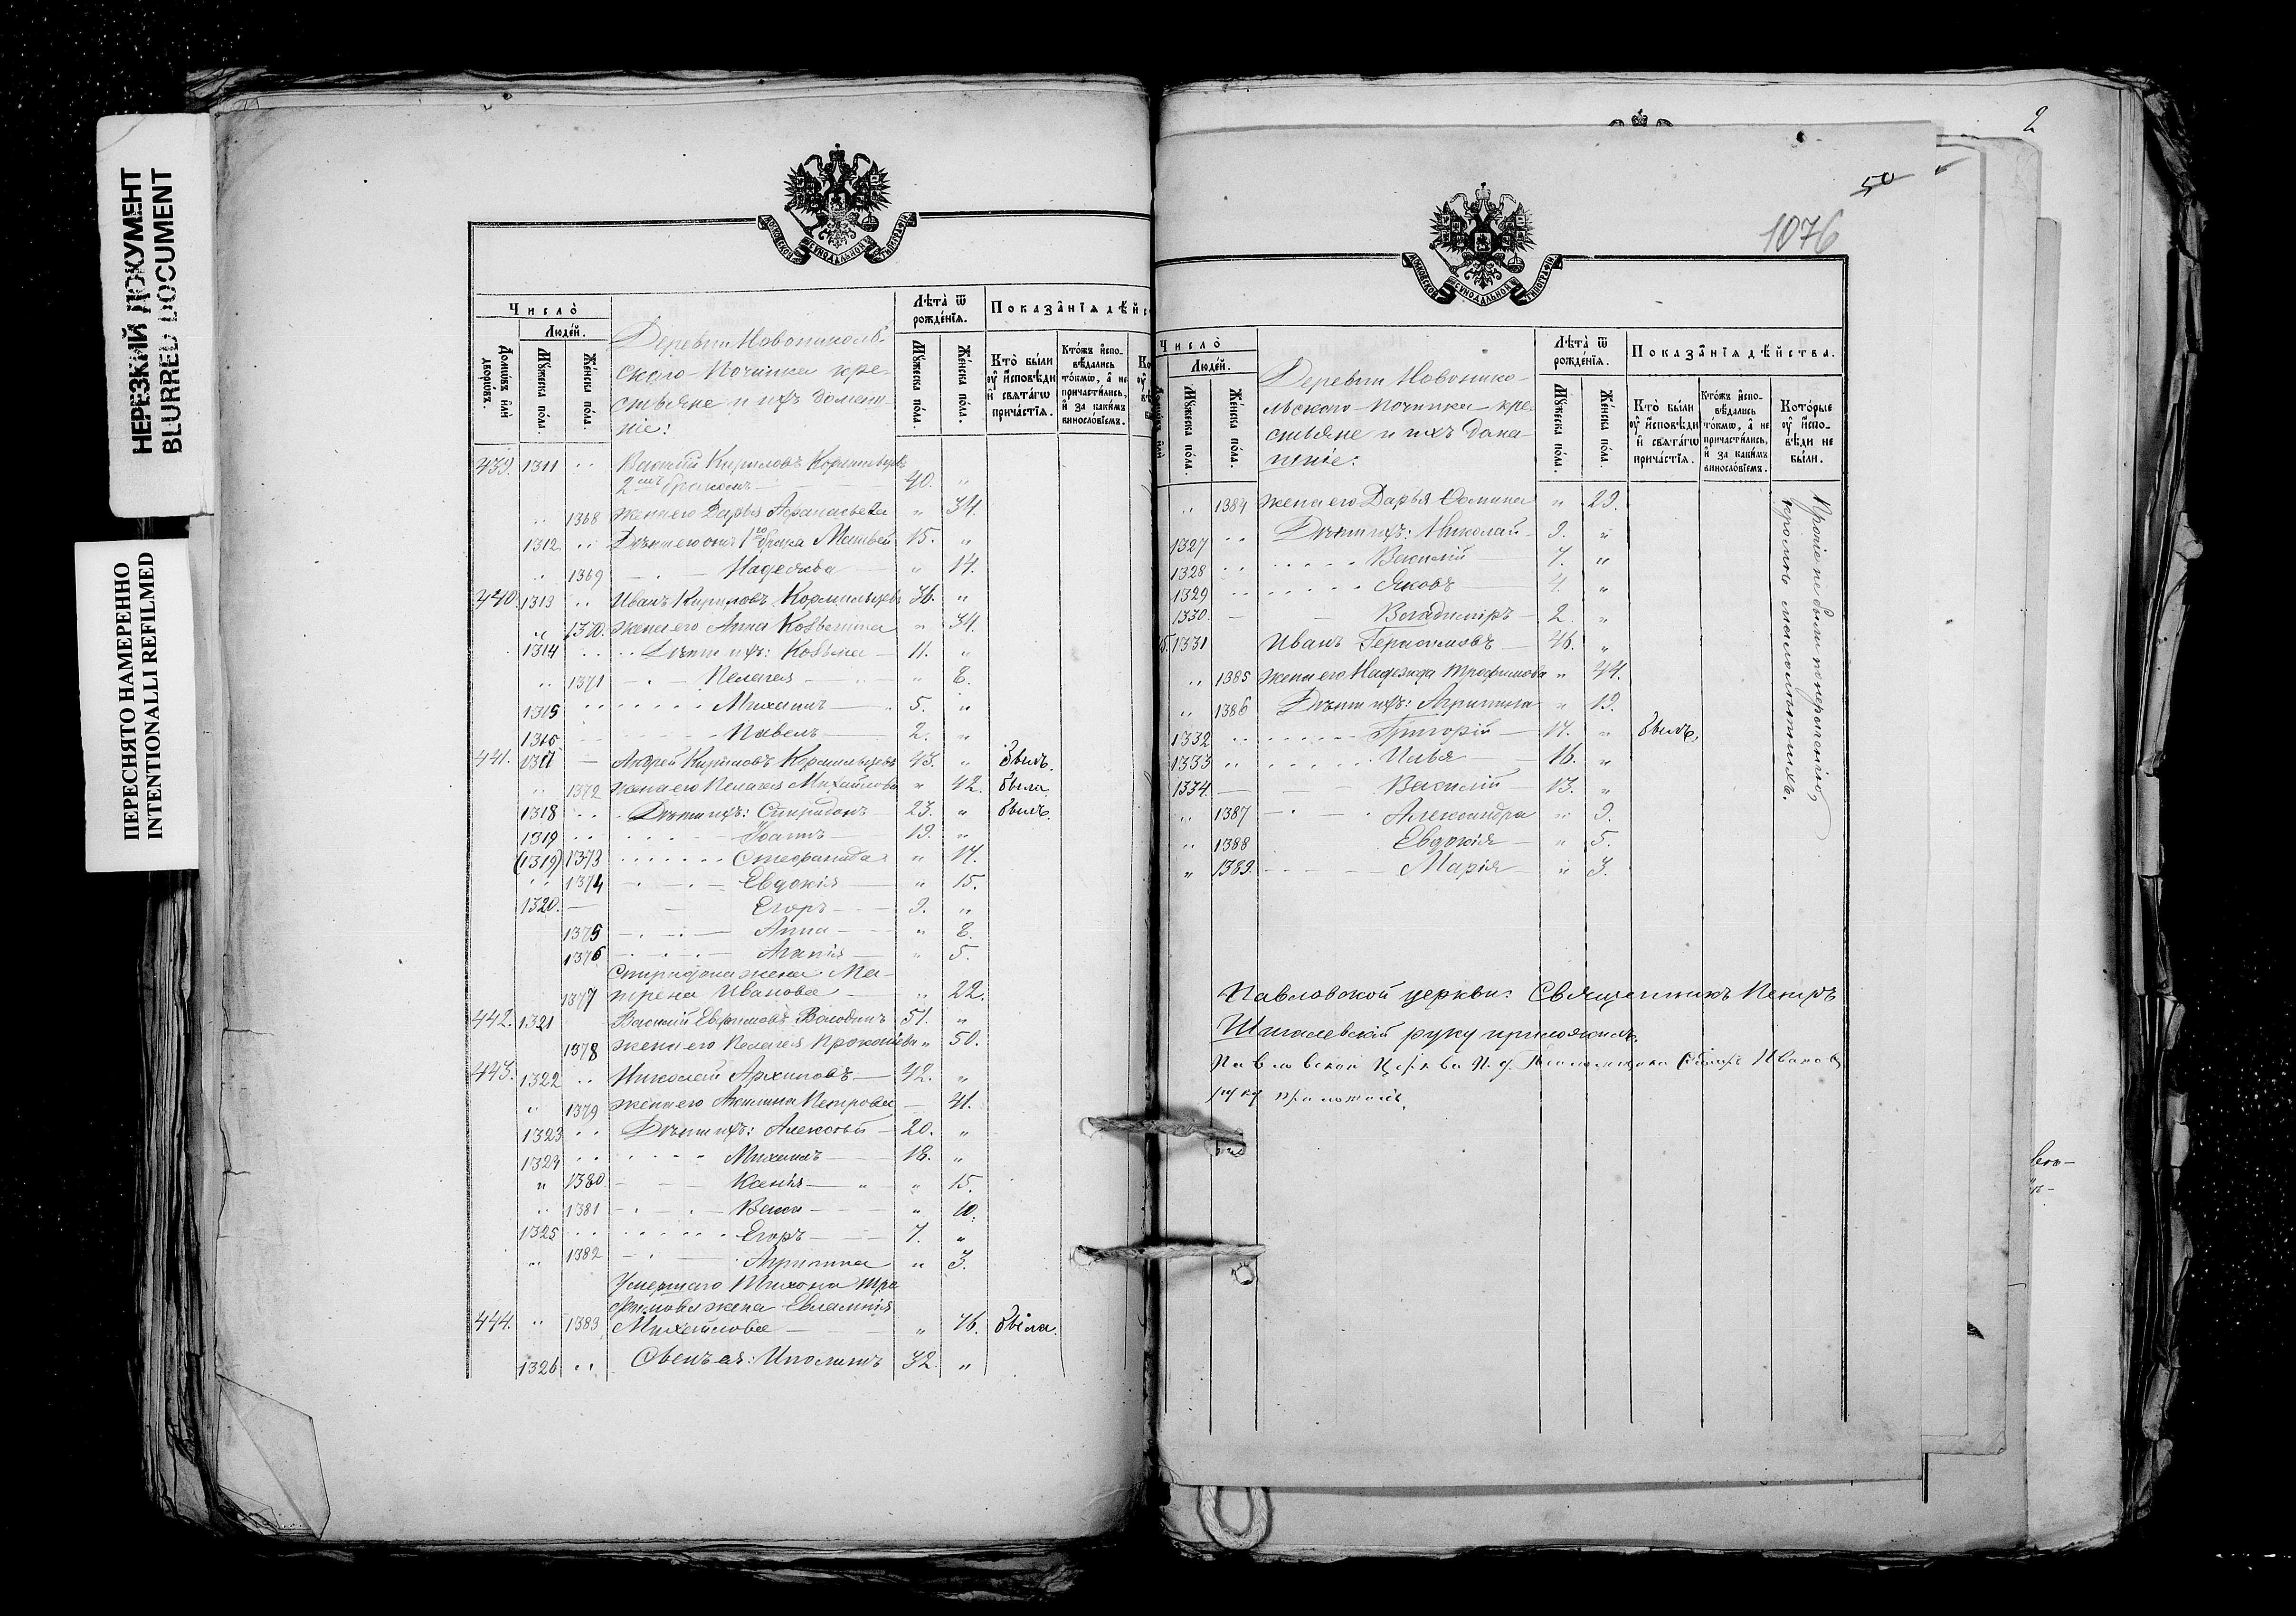 НЕРЕЗКИЙ ДОКУМЕНТ
BLURRED DOCUMENT
ПЕРЕСНЯТО НАМЕРЕННО
INTENTIONALLI REFILMED
МОСКОВСКОЙ СѴНОДАЛЬНОЙ ТИПОГРАФІИ
Число̀
Людéй.
Домѡ́въ и҆лѝ дворѡ́въ.
Мꙋ́жеска по́ла.
Же́нска по́ла.
Деревни Новониколь-
скаго Починка кре-
стьяне и ихъ домаш-
ніе:
Лѣ́та ѿ рожде́нїѧ.
Мꙋ́жеска по́ла.
Же́нска по́ла.
Показа̑нїѧ дѣ́йс
Кто̀ бы́ли ᲂу҆ и҆сповѣ́ди и҆ свѧта́гѡ прича́стїѧ.
Кто́жъ и҆спо-вѣ́дались то́кмѡ, а҆ не причасти́лись, и҆ за каки́мъ виносло́вїемъ.
439. 1311 Василій Кириловъ
2мъ бракомъ 40. "
1368 жена его Дарья Афанасьева " 34.
1312 Дѣти его отъ 1го брака Матвей 15. "
1369 Надежда " 14.
440. 1313 Иванъ Кириловъ 36. "
1370. жена его Анна Козьмина " 34.
1314 Дѣти ихъ: Козьма 11. "
1371 Пелагея " 8.
1315 Михаилъ 5. "
1316 Павелъ 2. "
441. 1317 Андрей Кириловъ 43. " былъ.
1372 жена его Пелагея Михайлова " 42. была.
1318 Дѣти ихъ: Спиридонъ 23. " былъ.
1319 Іоаннъ 19. "
(1319) 1373 Стефанида " 17.
1374 Евдокія " 15.
1320. Егоръ 9. "
1375 Анна " 8.
1376 Агапія " 5.
Спиридона жена Ма-
1377 трена Иванова " 22.
442. 1321 Василій Евфимовъ Володинъ 51. "
1378 жена его Пелагея Прокопіева " 50.
443. 1322 Николай Архиповъ 42. "
1379 жена его Акилина Петрова 41.
1323 Дѣти ихъ: Алексѣй 20. "
1324 Михаилъ 18. "
" 1380 Ксенія " 15.
1381 Васса " 10.
1325 Егоръ 7. "
1382 Агрипина " 3.
Умершаго Тихона Тро
фимова жена Евлампія
444. 1383 Михайлова " 76. была.
1326 Сынъ ея: Иполитъ 32. "
2
50
1076
МОСКОВСКОЙ СѴНОДАЛЬНОЙ ТИПОГРАФІИ
Число̀
Людéй.
Мꙋ́жеска по́ла.
Же́нска по́ла.
Деревни Новонико-
льскаго Починка кре-
стьяне и ихъ дома-
шніе:
Лѣ́та ѿ рожде́нїѧ.
Мꙋ́жеска по́ла.
Же́нска по́ла.
Показа̑нїѧ дѣ́йства.
Кто̀ бы́ли ᲂу҆ и҆сповѣ́ди и҆ свѧта́гѡ прича́стїѧ.
Кто́жъ и҆спо-вѣ́дались то́кмѡ, а҆ не причасти́лись, и҆ за каки́мъ виносло́вїемъ.
Кото́рые ᲂу҆ и҆спо-вѣ́ди не бы́ли.
1384 жена его Дарья Фомина " 29.
1327 Дѣти ихъ: Николай 9. "
1328 Василій 7. "
1329 Яковъ 4. "
1330. Владимиръ 2. "
5. 1331 Иванъ Герасимовъ 46. "
1385 жена его Надежда Трофимова " 44.
1386 Дѣти ихъ: Агрипина " 19.
1332 Григорій 17. " былъ.
1333 Илья 16. "
1334. Василій 13. "
1387 Александра " 9.
1388 Евдокія " 5.
" 1389. Марія " 3.
Прочіе не были по нераченію,
кромѣ малолѣтнихъ.
Павловской церкви: Священникъ Петръ
Шигалевскій руку приложилъ.
Павловской Церкви И. д. Псаломщика Иванов
руку приложилъ.